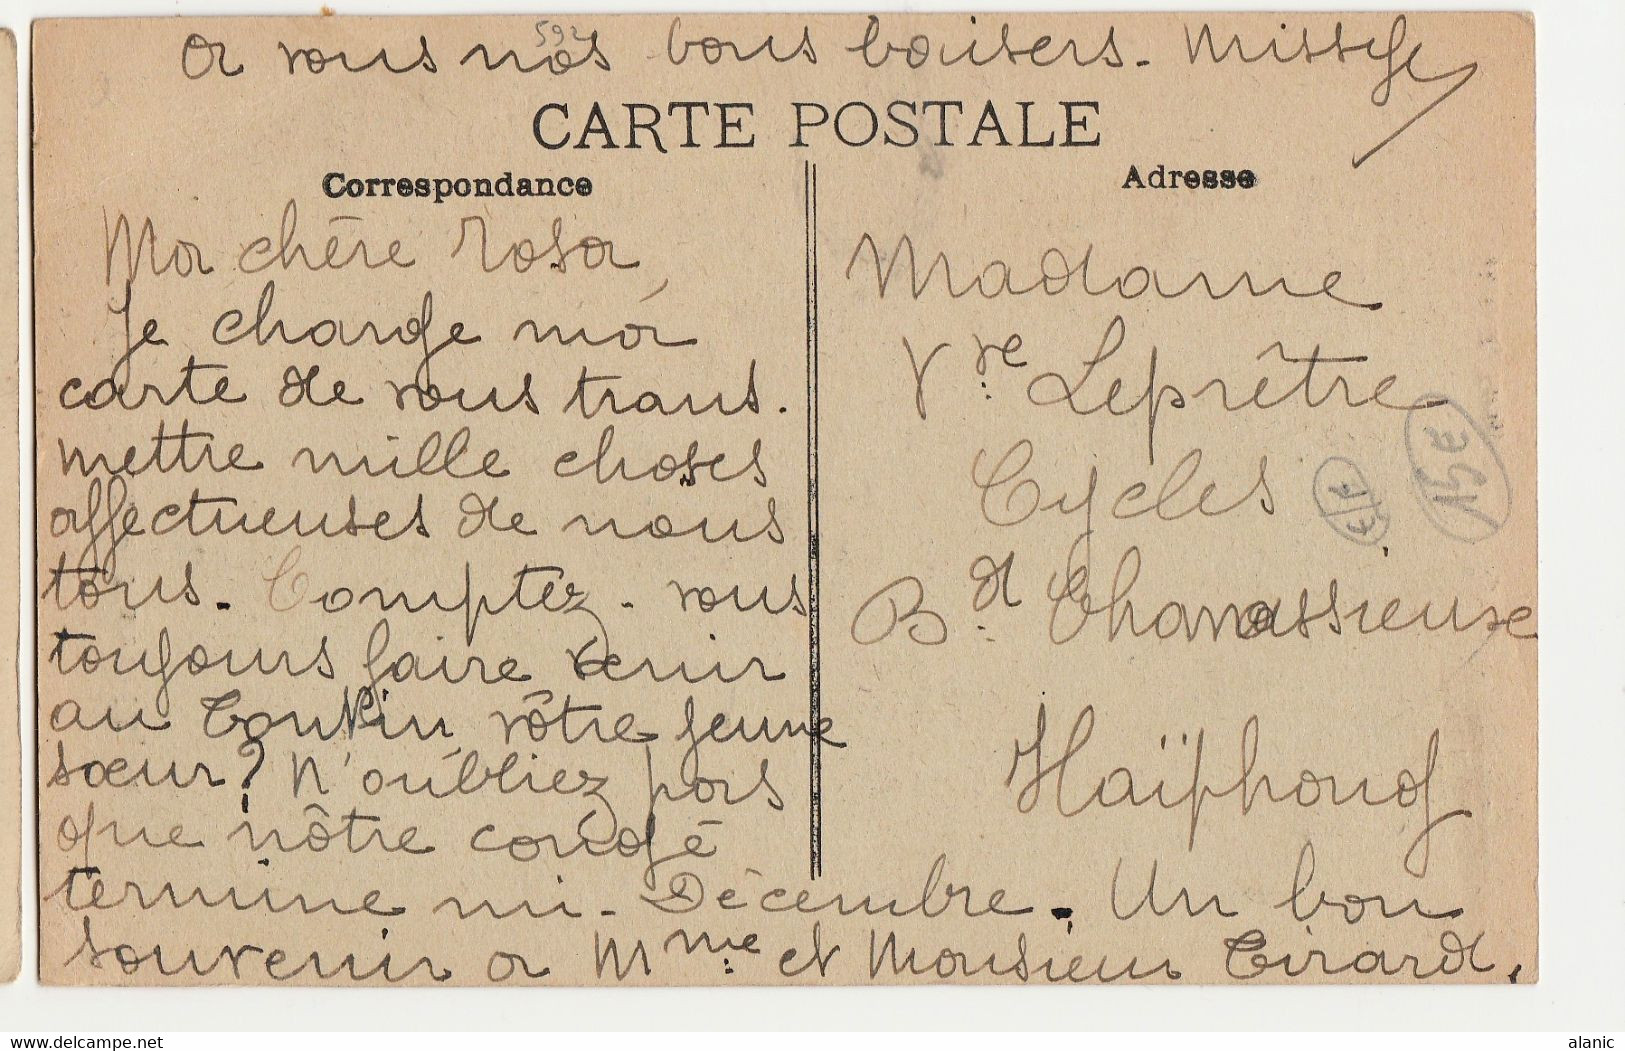 a vous nos bons baisers. Missye
592
CARTE POSTALE
Correspondance
Ma chère Rosa,
Je charge ma
carte de vous trans.
mettre mille choses
affectueuses de nous
tous. Comptez-vous
toujours faire venir
au Tonkin vôtre jeune
sœur? N'oubliez pas
que nôtre congé
termine mi-Décembre. Un bon
souvenir a Mme et Monsieur Tirard.
Adresse
Madame
Vve Leprêtre
Cycles
Bd Chavassieuse
Haïphong
15E
delcampe.net
alanic